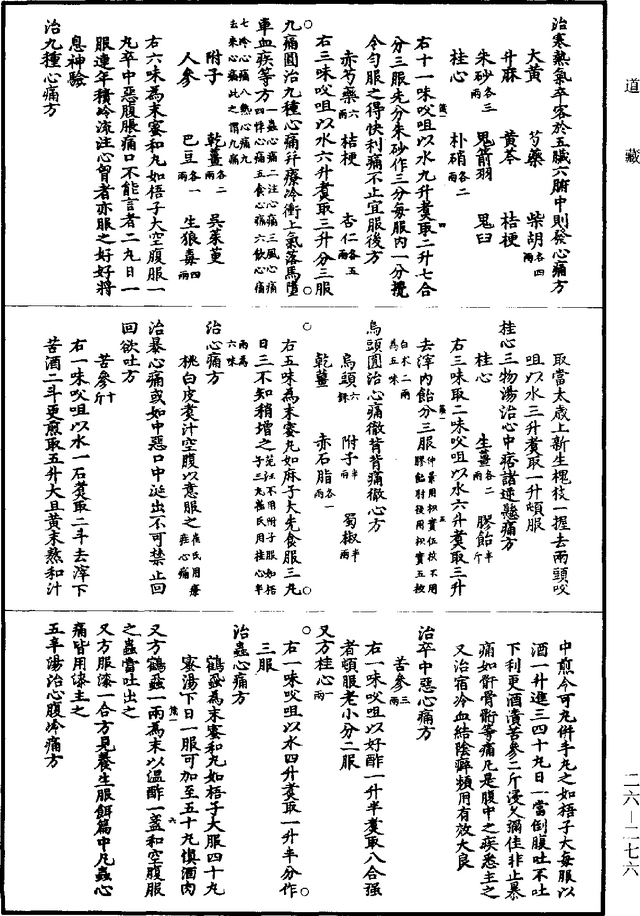 道藏
治寒熱氣卒客於五臟六腑中則發心痛方
大黃 芍藥 柴胡各四兩
升麻 黃芩 桔梗
朱砂各三兩 鬼箭羽 鬼臼
桂心 朴硝各二兩
右十一味㕮咀以水九升煑取二升七合
分三服先分朱砂作三分每服內一分攪
令勻服之得快利痛不止宜服後方
赤芍藥六兩 桔梗 杏仁各五兩
右三味㕮咀以水六升煑取三升分三服
九痛圓治九種心痛并療冷衝上氣落馬墮
車血疾等方一蟲心痛二注心痛三風心痛四悸心痛五食心痛六飲心痛七冷心痛八熱心痛九去來心痛此之謂九痛
附子 乾薑各二兩 吳茱萸
人參 巴豆各一兩 生狼毒四兩
右六味為末蜜和丸如梧子大空腹服一
丸卒中惡腹脹痛口不能言者二九日一
服連年積冷流注心胷者亦服之好好將
息神驗
治九種心痛方
取當太歲上新生槐枝一握去兩頭㕮
咀以水三升煑取一升頓服
桂心三物湯治心中痞諸逆懸痛方
桂心 生薑各二兩 膠飴半斤
右三味取二味㕮咀以水六升煑取三升
去滓內飴分三服仲景用枳實五枚不用膠飴肘後用枳實五枚白朮二兩為五味
烏頭圓治心痛徹背背痛徹心方
烏頭六銖 附子半兩 蜀椒半兩
乾薑 赤石脂各一兩
右五味為末蜜丸如麻子大先食服三丸
日三不知稍增之范汪不用附子服如梧子三丸崔氏用桂心半兩為六味
治心痛方
桃白皮煑汁空腹以意服之崔氏用療疰心痛
治暴心痛或如中惡口中涎出不可禁止回
回欲吐方
苦參十斤
右一味㕮咀以水一石煑取二斗去滓下
苦酒二斗更煎取五升大豆黃末熟和汁
中煎令可丸併手丸之如梧子大每服以
酒一升進三四十丸日一當倒腹吐不吐
下利更酒漬苦參二斤浸久彌佳非止暴
痛如骭骨䯒等痛凡是腹中之疾悉主之
又治宿冷血結陰癖頻用有效大良
治卒中惡心痛方
苦參三兩
右一味㕮咀以好酢一升半煑取八合強
者頓服老小分二服
又方桂心一兩
右一味㕮咀以水四升煑取一升半分作
三服
治蟲心痛方
鶴蝨為末蜜和丸如梧子大服四十丸
蜜湯下日一服可加至五十丸慎酒肉
又方鶴蝨一兩為末以溫酢一盞和空腹服
之蟲當吐出之
又方服漆一合方見養生服餌篇中凡蟲心
痛皆用漆主之
五辛湯治心腹冷痛方
二六-二七六